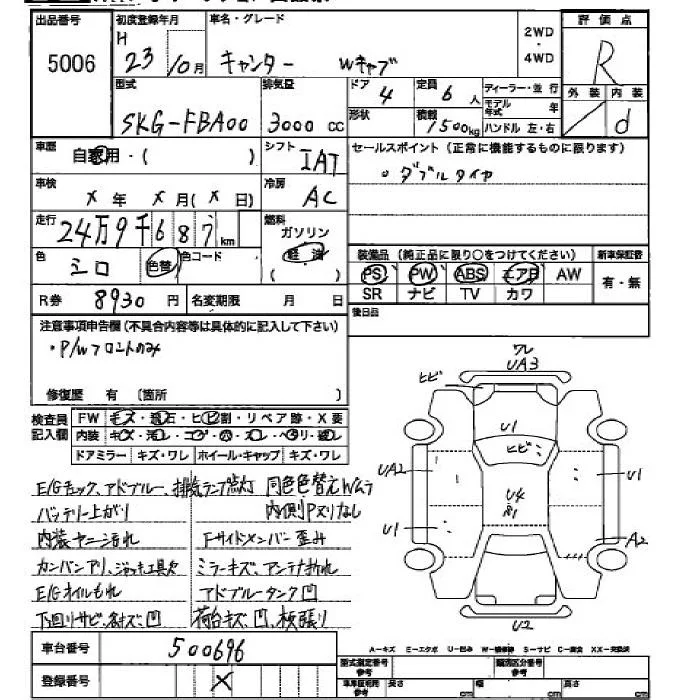 出品番号 初度登録年月 車名・グレード 評価点
5006 H 23 10月 キャンター Wキャブ 2WD・4WD R
型式 排気量 ドア 4 定員 6 人 ディーラー・並行 外装 内装
SKG-FBA00 3000 cc 形状 積載 1500kg モデル年式 年 ハンドル 左・右 d
車歴 自家用・( ) シフト IAT セールスポイント (正常に機能するものに限ります)
車検 X 年 X 月( X 日) 冷房 AC 。ダブルタイヤ
走行 24万9千687 km 燃料 ガソリン
色 シロ 色替 色コード 軽油 ( ) 装備品 (純正品に限り○をつけてください) 新車保証書
R券 8930 円 名変期限 月 日 PS PW ABS エア月 AW 有・無
SR ナビ TV カワ
後日品
注意事項申告欄(不具合内容等は具体的に記入して下さい)
・P/Wフロントのみ
修復歴 有 〔箇所 〕
検査員記入欄 FW キズ・飛石・ヒビ割・リペア跡・X要
内装 キズ・汚レ・コゲ・穴・スレ・ヘタリ・破レ
ドアミラー キズ・ワレ ホイール・キャップ キズ・ワレ
E/Gチェック、アドブルー、排気ランプ点灯 同色色替えWムラ
バッテリー上がり 内側Pヌリなし
内装ヤニ・汚れ Fサイドメンバー歪み
カンバンアリ、ジャッキ工具欠 ミラーキズ、アンテナ折れ
E/Gオイルもれ アドブルータンク凹
下回りサビ、キズ、凹 荷台キズ、凹、板張り
ワレ
UA3
ヒビ
U1
ヒビ
UA2 U1
U4
R1
U1 A2
U2
車台番号 500696
登録番号 X
A－キズ E－エクボ U－凹み W－補修跡 S－サビ C－腐食 XX－交換済
型式指定番号 参考 類別区分番号 参考
車庫証明用 参考 長さ cm 幅 cm 高さ cm